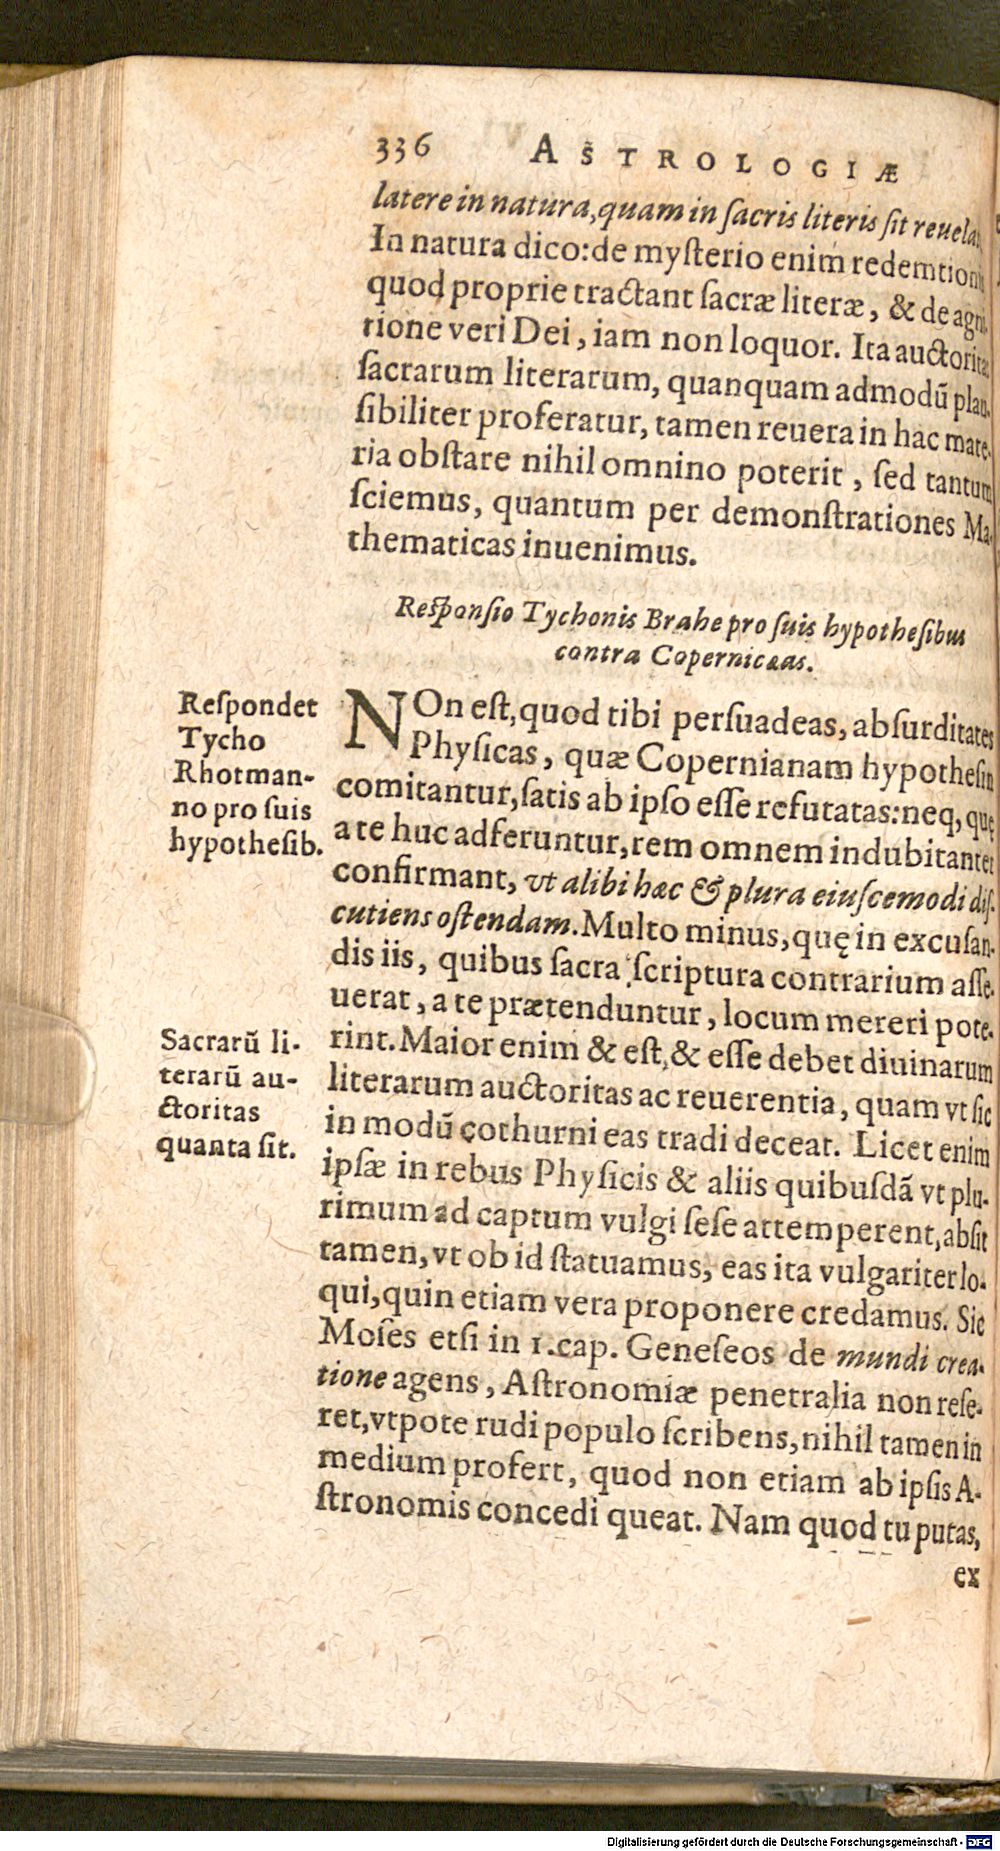 336 ASTROLOGIÆ
latere in natura, quam in ſacris literis ſit reuela
In natura dico: de myſterio enim redemtion
quod proprie tractant ſacræ literæ, & de agni
tione veri Dei, iam non loquor. Ita auctorita
ſacrarum literarum, quanquam admodū plau
ſibiliter proferatur, tamen reuera in hac mate-
ria obſtare nihil omnino poterit, ſed tantum
ſciemus, quantum per demonſtrationes Ma-
thematicas inuenimus.
Reſponſio Tychonis Brahe pro ſuis hypotheſibus
contra Coperniceas.
Reſpondet
Tycho
Rhotman-
no pro ſuis
hypotheſib.
NOn eſt, quod tibi perſuadeas, abſurditates
Phyſicas, quæ Copernianam hypotheſin
comitantur, ſatis ab ipſo eſſe refutatas: neq, quę
a te huc adferuntur, rem omnem indubitanter
confirmant, vt alibi hæc & plura eiuſcemodi diſ-
cutiens oſtendam. Multo minus, quę in excuſan-
dis iis, quibus ſacra ſcriptura contrarium aſſe-
uerat, a te prætenduntur, locum mereri pote-
rint. Maior enim & eſt, & eſſe debet diuinarum
literarum auctoritas ac reuerentia, quam vt ſic
in modū cothurni eas tradi deceat. Licet enim
ipſæ in rebus Phyſicis & aliis quibuſdā vt plu-
rimum ad captum vulgi ſeſe attemperent, abſit
tamen, vt ob id ſtatuamus, eas ita vulgariter lo-
qui, quin etiam vera proponere credamus. Sic
Moſes etſi in 1. cap. Geneſeos de mundi crea-
tione agens, Aſtronomiæ penetralia non reſe-
ret, vtpote rudi populo ſcribens, nihil tamen in
medium profert, quod non etiam ab ipſis A-
ſtronomis concedi queat. Nam quod tu putas,
ex
Sacrarū li-
terarū au-
ctoritas
quanta ſit.
Digitalisierung gefördert durch die Deutsche Forschungsgemeinschaft - DFG